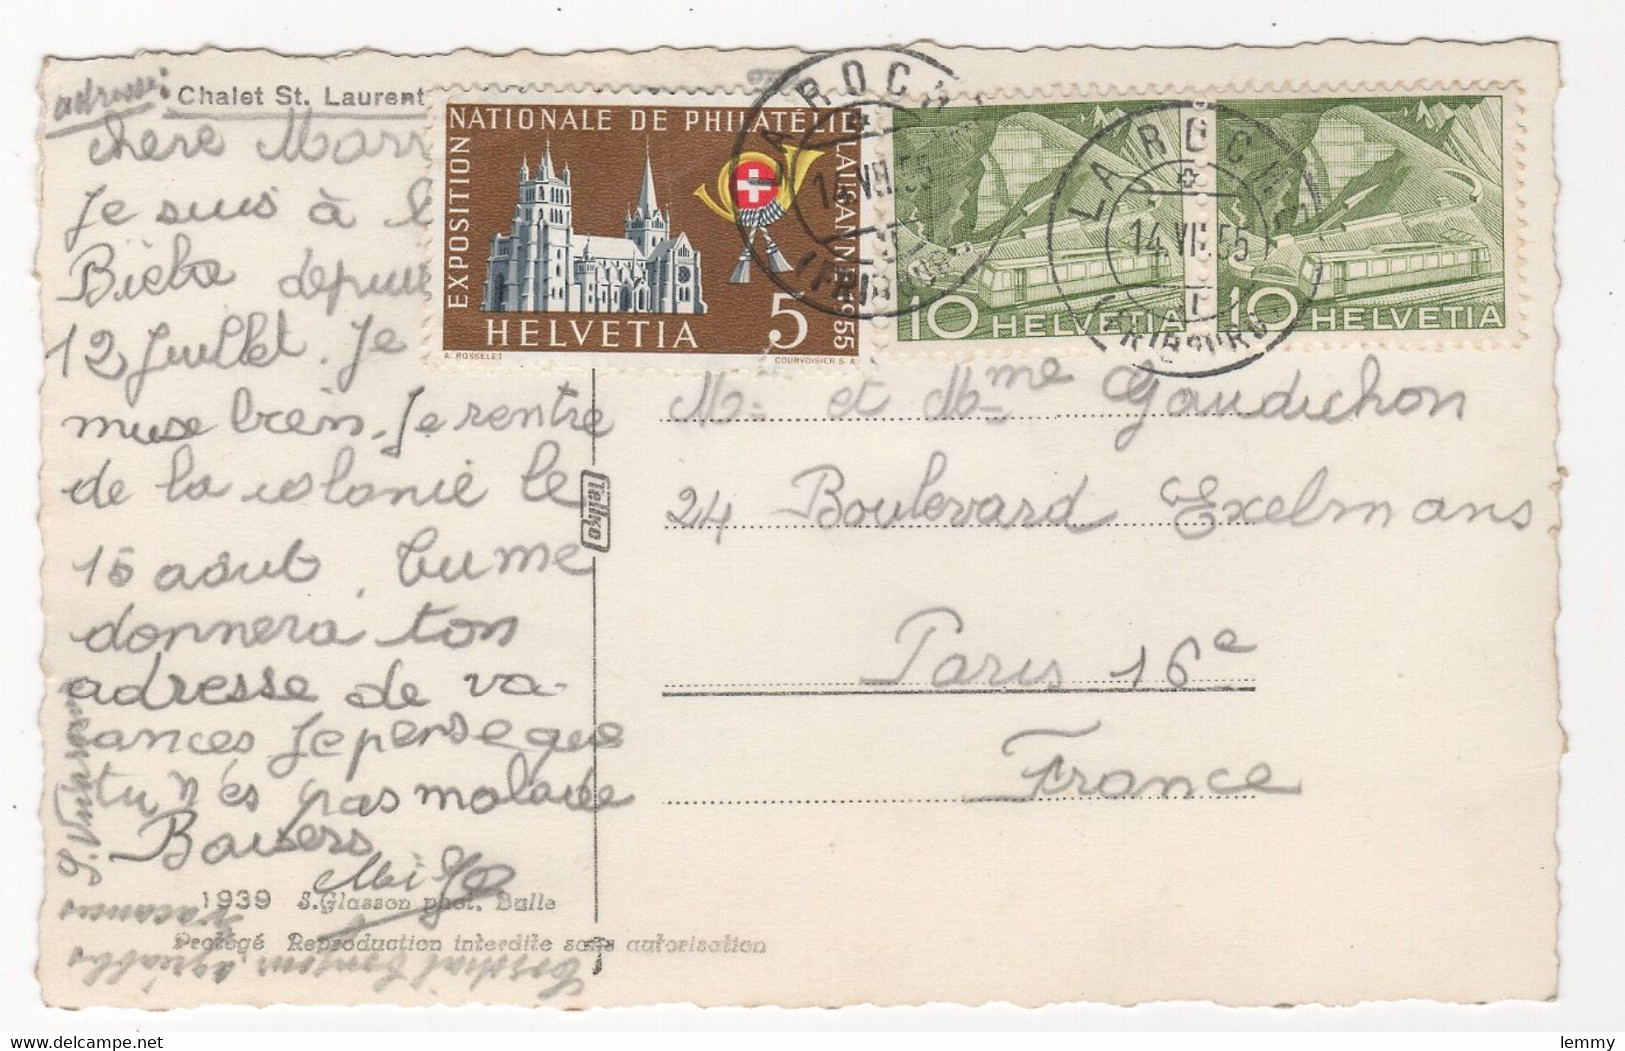 adresse: Chalet St. Laurent
chère
Je suis à
depuis
12 Juillet. Je
muse bien. Je rentre
de la colonie le
15 août. tu me
donnera ton
adresse de va-
cances Je pense que
tu n'es pas malade
Baisers
1939 S.Glasson phot. Bulle
Protégé Reproduction interdite sans autorisation
vacances
agréables
Tellko
EXPOSITION NATIONALE DE PHILATÉLIE LAUSANNE 1955
HELVETIA 5
A. ROSSELET COURVOISIER S.A.
10 HELVETIA
10 HELVETIA
LA ROCHE
14.VII.55
(FRIBOURG)
LA ROCHE
14.VII.55
(FRIBOURG)
Mr et Mme Gaudichon
24 Boulevard Exelmans
Paris 16e
France
lemmy
delcampe.net